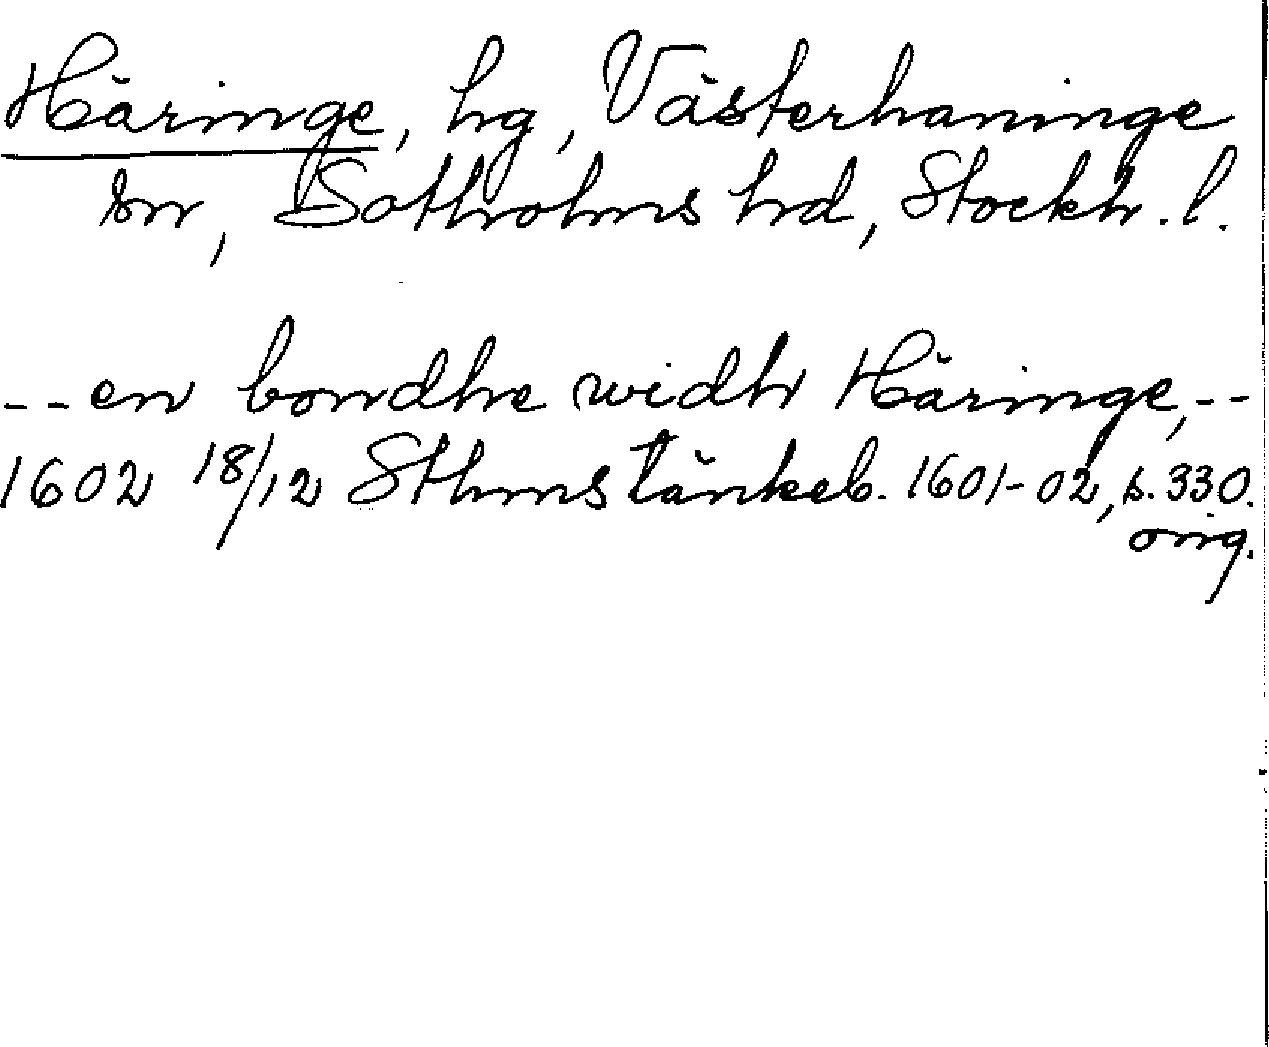 Häringe, hg, Västerhaninge
sn, Sotholms hd, Stockh. l.
-- en bondhe widh Häringe, --
1602 18/12 Sthms tänkeb. 1601-02, s. 330.
orig.